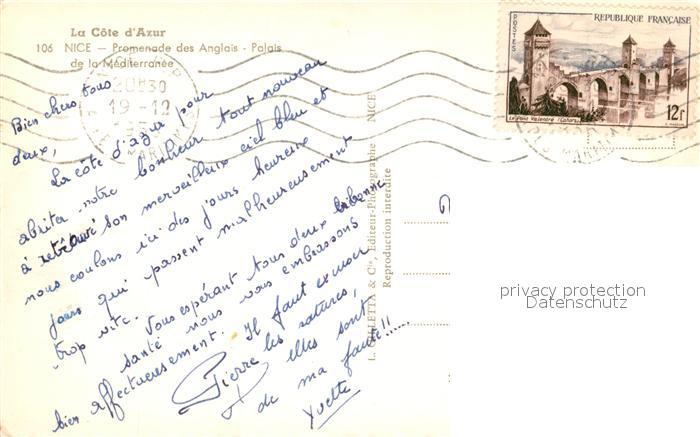 La Côte d'Azur
106 NICE — Promenade des Anglais - Palais
de la Méditerranée
Bien chers tous
deux,
La côte d'azur pour
abriter notre bonheur tout nouveau
à retrouvé son merveilleux ciel bleu et
nous coulons ici des jours heureux
jours qui passent malheureusement
trop vite. Vous espérant tous deux en bonne
santé nous vous embrassons
bien affectueusement. Il faut excuser
Pierre les ratures,
elles sont
de ma faute!!...
Yvette
L. GILLETTA & Cie, Editeur-Photographe NICE
Reproduction interdite
POSTES
REPUBLIQUE FRANÇAISE
Le Pont Valentré (Cahors)
12f
20H30
19-12
privacy protection
Datenschutz